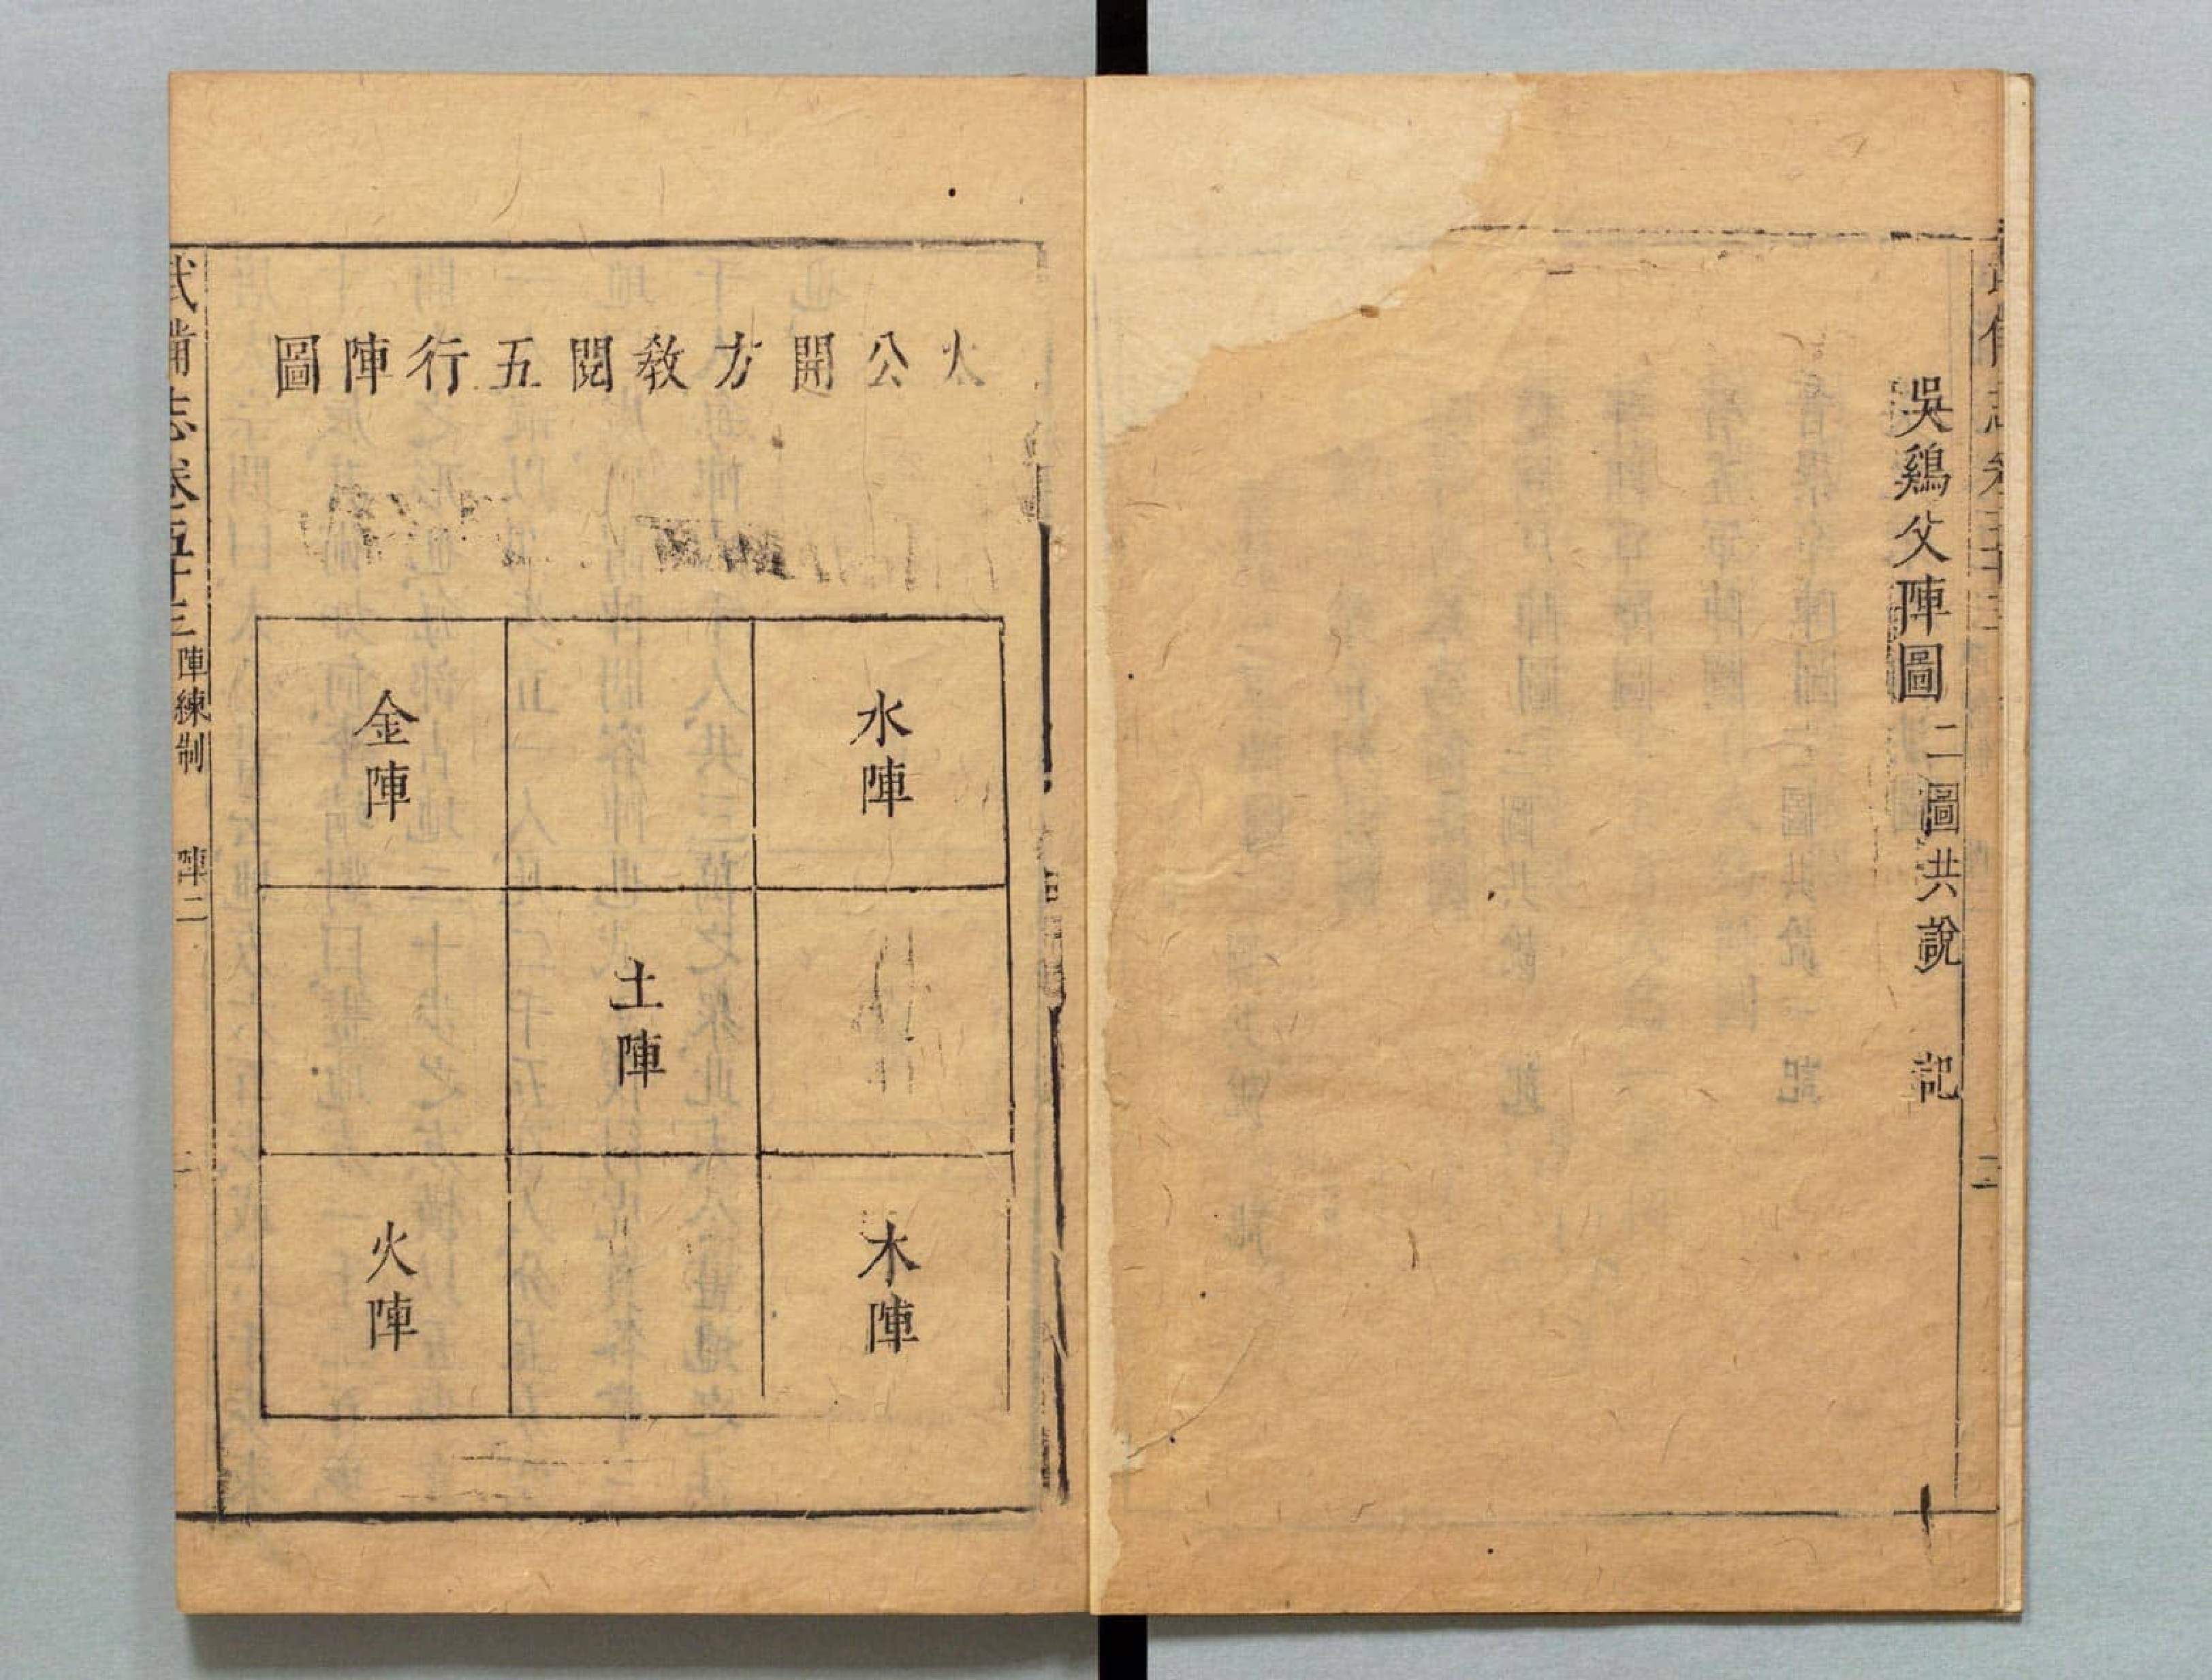 吳鷄父陣圖 二圖共說 記
二
太公開方教閱五行陣圖
水陣
金陣
土陣
木陣
火陣
武備志卷五十三 陣練制 陣二 二